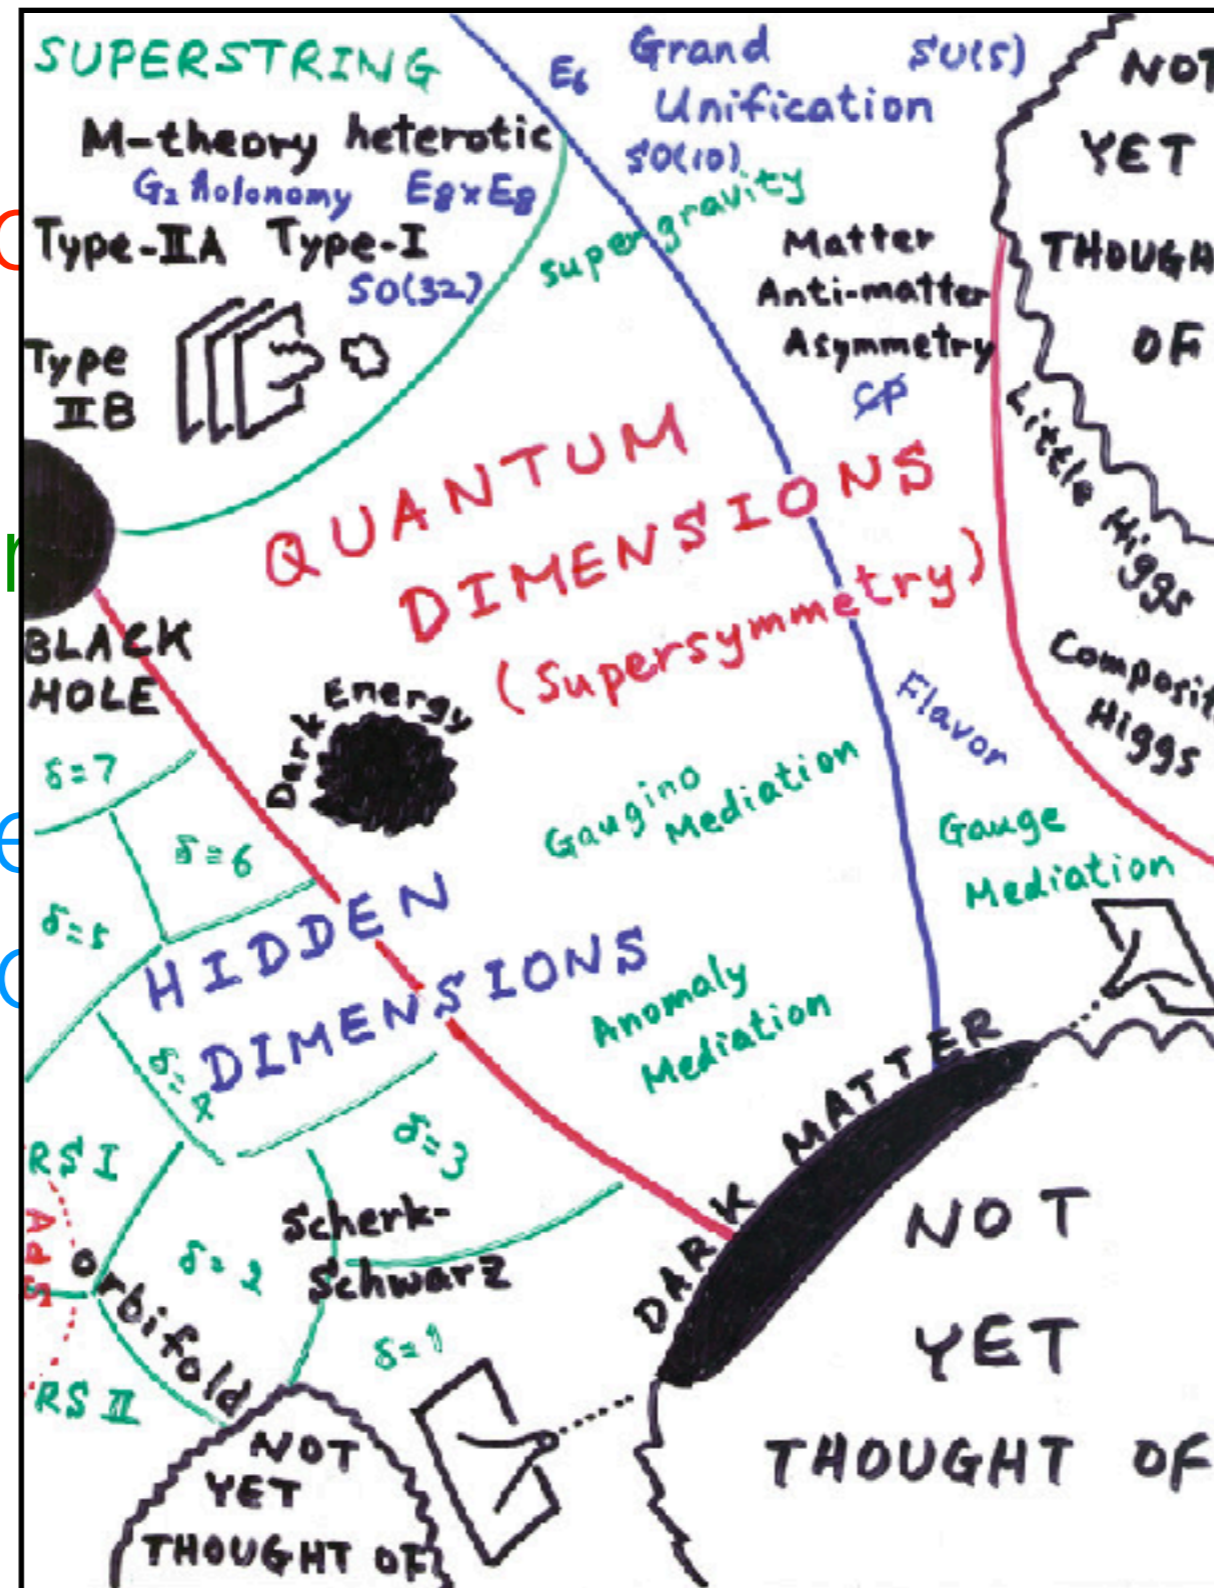 SUPERSTRING
M-theory heterotic
G₂ holonomy E8xE8
Type-IIA Type-I
SO(32)
Type
IIB
E₆
Grand
Unification
SU(5)
SO(10)
supergravity
Matter
Anti-matter
Asymmetry
CP
NOT
YET
THOUGH
OF
Little Higgs
Composit
Higgs
QUANTUM
DIMENSIONS
(Supersymmetry)
BLACK
HOLE
Dark Energy
Flavor
Gaugino
Mediation
Gauge
Mediation
Anomaly
Mediation
δ=7
δ=6
δ=5
HIDDEN
DIMENSIONS
δ=4
δ=3
RS I
AdS
orbifold
δ=2
Scherk-
Schwarz
δ=1
RS II
DARK MATTER
NOT
YET
THOUGHT OF
NOT
YET
THOUGHT OF